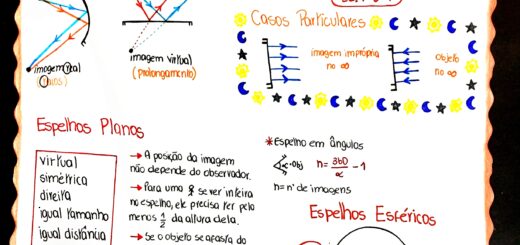 Casos Particulares
imagem real
(raios)
imagem virtual
(prolongamento)
imagem imprópria
no ∞
Objeto
no ∞
Espelhos Planos
virtual
simétrica
direita
igual tamanho
igual distância
→ A posição da imagem
não depende do observador.
→ Para uma ♀ se ver inteira
no espelho, ele precisa ter pelo
menos 1/2 da altura dela.
→ Se o objeto se afasta do
*Espelho em ângulos
α •obj n= 360/α - 1
n= nº de imagens
Espelhos Esféricos